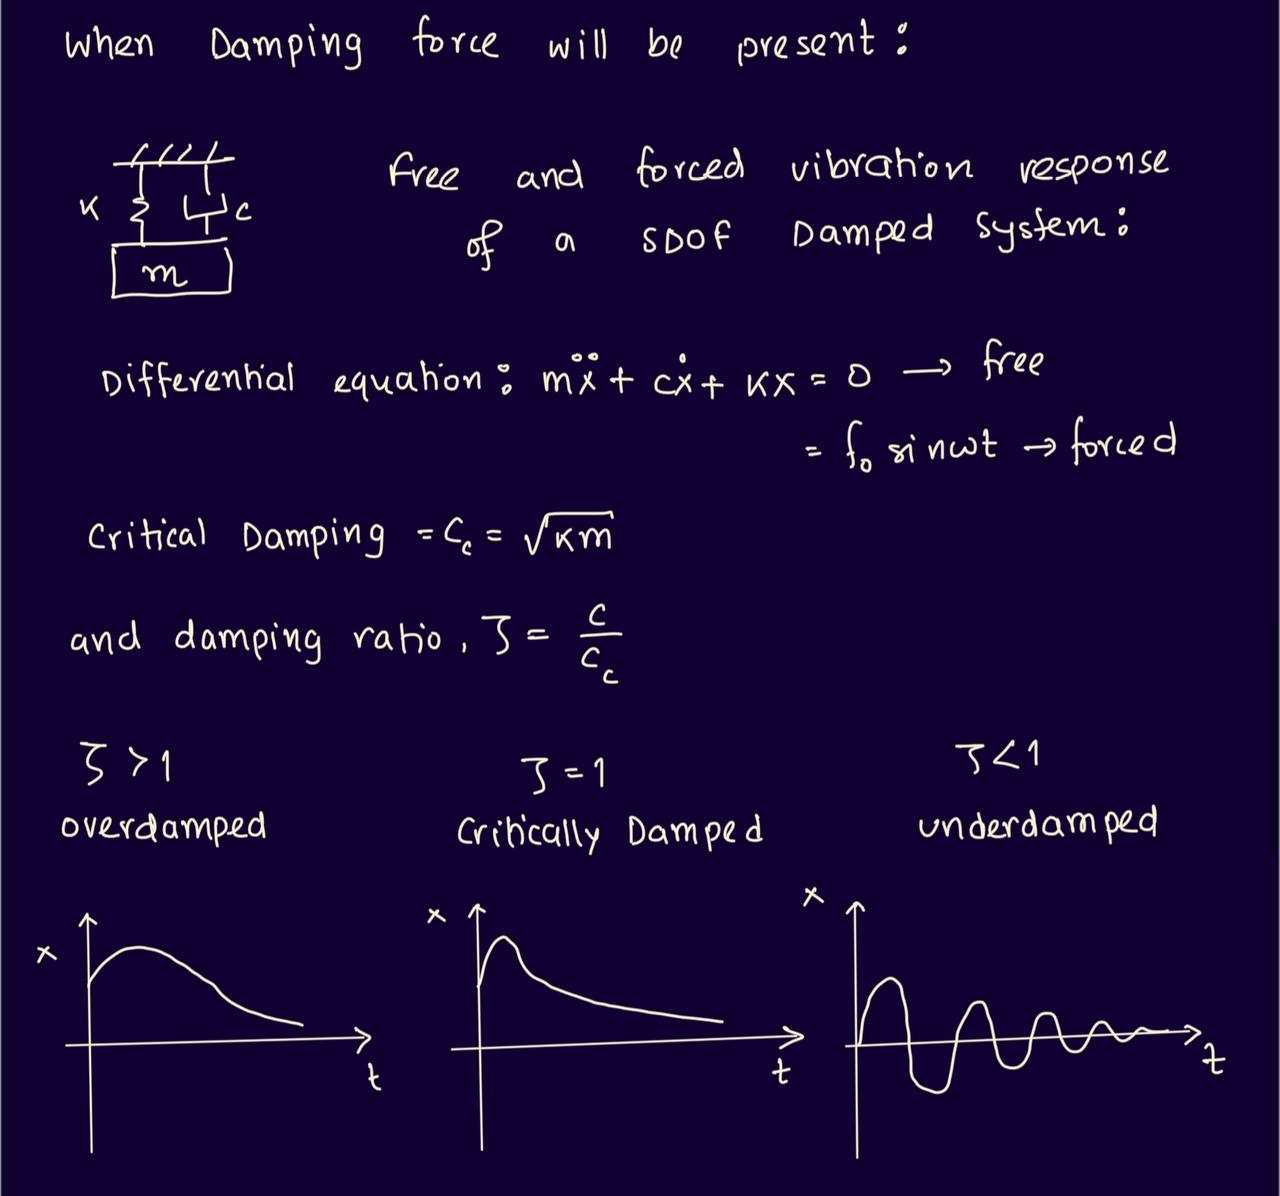 When Damping force will be present:
K
C
m
Free and forced vibration response
of a SDOF Damped System:
Differential equation: mẍ + cẋ + Kx = 0 → free
= f₀ sinωt → forced
Critical Damping = C꜀ = √Km
and damping ratio, ζ = C/C꜀
ζ > 1
overdamped
ζ = 1
Critically Damped
ζ < 1
underdamped
x
t
x
t
x
t